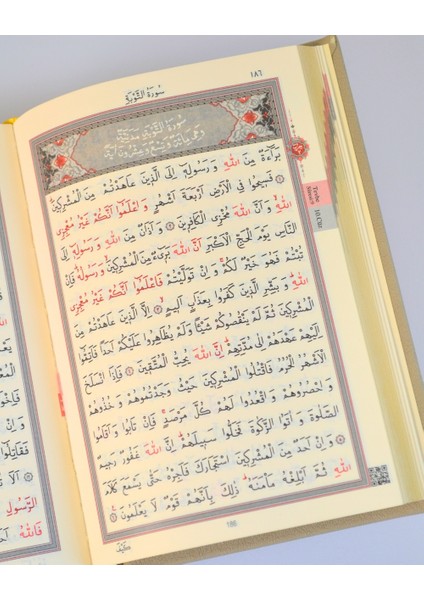 سُورَةُ التَّوْبَةِ
١٨٦
سُورَةُ التَّوْبَةِ مَدَنِيَّةٌ
وَهِيَ مِائَةٌ وَتِسْعٌ وَعِشْرُونَ اٰيَةً
بَرَٓاءَةٌ مِنَ اللّٰهِ وَرَسُولِه۪ٓ اِلَى الَّذ۪ينَ عَاهَدْتُمْ مِنَ الْمُشْرِك۪ينَۜ
فَس۪يحُوا فِي الْاَرْضِ اَرْبَعَةَ اَشْهُرٍ وَاعْلَمُٓوا اَنَّكُمْ غَيْرُ مُعْجِزِي
اللّٰهِۙ وَاَنَّ اللّٰهَ مُخْزِي الْكَافِر۪ينَ وَاَذَانٌ مِنَ اللّٰهِ وَرَسُولِه۪ٓ اِلَى
النَّاسِ يَوْمَ الْحَجِّ الْاَكْبَرِ اَنَّ اللّٰهَ بَر۪ٓيءٌ مِنَ الْمُشْرِك۪ينَ وَرَسُولُهُۜ فَاِنْ
تُبْتُمْ فَهُوَ خَيْرٌ لَكُمْۚ وَاِنْ تَوَلَّيْتُمْ فَاعْلَمُٓوا اَنَّكُمْ غَيْرُ مُعْجِزِي
اللّٰهِۜ وَبَشِّرِ الَّذ۪ينَ كَفَرُوا بِعَذَابٍ اَل۪يمٍۙ اِلَّا الَّذ۪ينَ عَاهَدْتُمْ مِنَ
الْمُشْرِك۪ينَ ثُمَّ لَمْ يَنْقُصُوكُمْ شَيْـٔاً وَلَمْ يُظَاهِرُوا عَلَيْكُمْ اَحَداً فَاَتِمُّٓوا
اِلَيْهِمْ عَهْدَهُمْ اِلٰى مُدَّتِهِمْۜ اِنَّ اللّٰهَ يُحِبُّ الْمُتَّق۪ينَ فَاِذَا انْسَلَخَ
الْاَشْهُرُ الْحُرُمُ فَاقْتُلُوا الْمُشْرِك۪ينَ حَيْثُ وَجَدْتُمُوهُمْ وَخُذُوهُمْ
وَاحْصُرُوهُمْ وَاقْعُدُوا لَهُمْ كُلَّ مَرْصَدٍۚ فَاِنْ تَابُوا وَاَقَامُوا
الصَّلٰوةَ وَاٰتَوُا الزَّكٰوةَ فَخَلُّوا سَب۪يلَهُمْۜ اِنَّ اللّٰهَ غَفُورٌ رَح۪يمٌ
وَاِنْ اَحَدٌ مِنَ الْمُشْرِك۪ينَ اسْتَجَارَكَ فَاَجِرْهُ حَتّٰى يَسْمَعَ كَلَامَ
اللّٰهِ ثُمَّ اَبْلِغْهُ مَأْمَنَهُۜ ذٰلِكَ بِاَنَّهُمْ قَوْمٌ لَا يَعْلَمُونَ
186
كَيْفَ
Tevbe
Sûresi 9
10.Cüz
الرَّسُولِ
فَاللّٰهُ